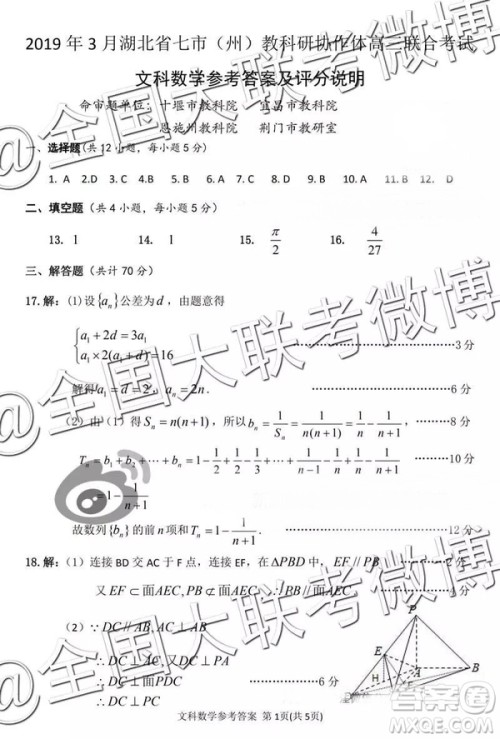 2019 年 3 月湖北省七市（州）教科研协作体高三联合考试
文科数学参考答案及评分说明
命审题单位：十堰市教科院 宜昌市教科院
恩施州教科院 荆门市教研室
一、选择题(共 12 小题，每小题 5 分)
1. A 2.D 3.C 4.B 5.C 6.B 7.D 8.C 9.B 10. A 11.B 12. D
二、填空题（共 4 小题，每小题 5 分）
13. 1 14. 1 15. π/2 16. 4/27
三、解答题（共计 70 分）
17.解：(1)设{aₙ}公差为d，由题意得
{a₁+2d=3a₁
a₁×2(a₁+d)=16 ……………3 分
解得a₁=d=2，aₙ=2n. ……………6 分
（2）由（1）得Sₙ=n(n+1)，所以bₙ=1/Sₙ=1/n(n+1)=1/n-1/(n+1)， ………8 分
Tₙ=b₁+b₂+…+bₙ=1-1/2+1/2-1/3+…+1/n-1/(n+1) ………10 分
=1-1/(n+1)
故数列{bₙ}的前n项和Tₙ=1-1/(n+1). ……………12 分
18.解：（1）连接 BD 交 AC 于 F 点，连接 EF，在△PBD中，EF//PB
又EF⊂面AEC,PB⊄面AEC
（2）∵DC//AB,AC⊥AB
∴DC⊥AC，又DC⊥PC
∴DC⊥面PDC
∴DC⊥PA ……………6 分
P
E
H
A
文科数学参考答案 第 1页(共 5页)
@全国大联考微博
@全国大联考微博
@全国大联考微博
答案圈